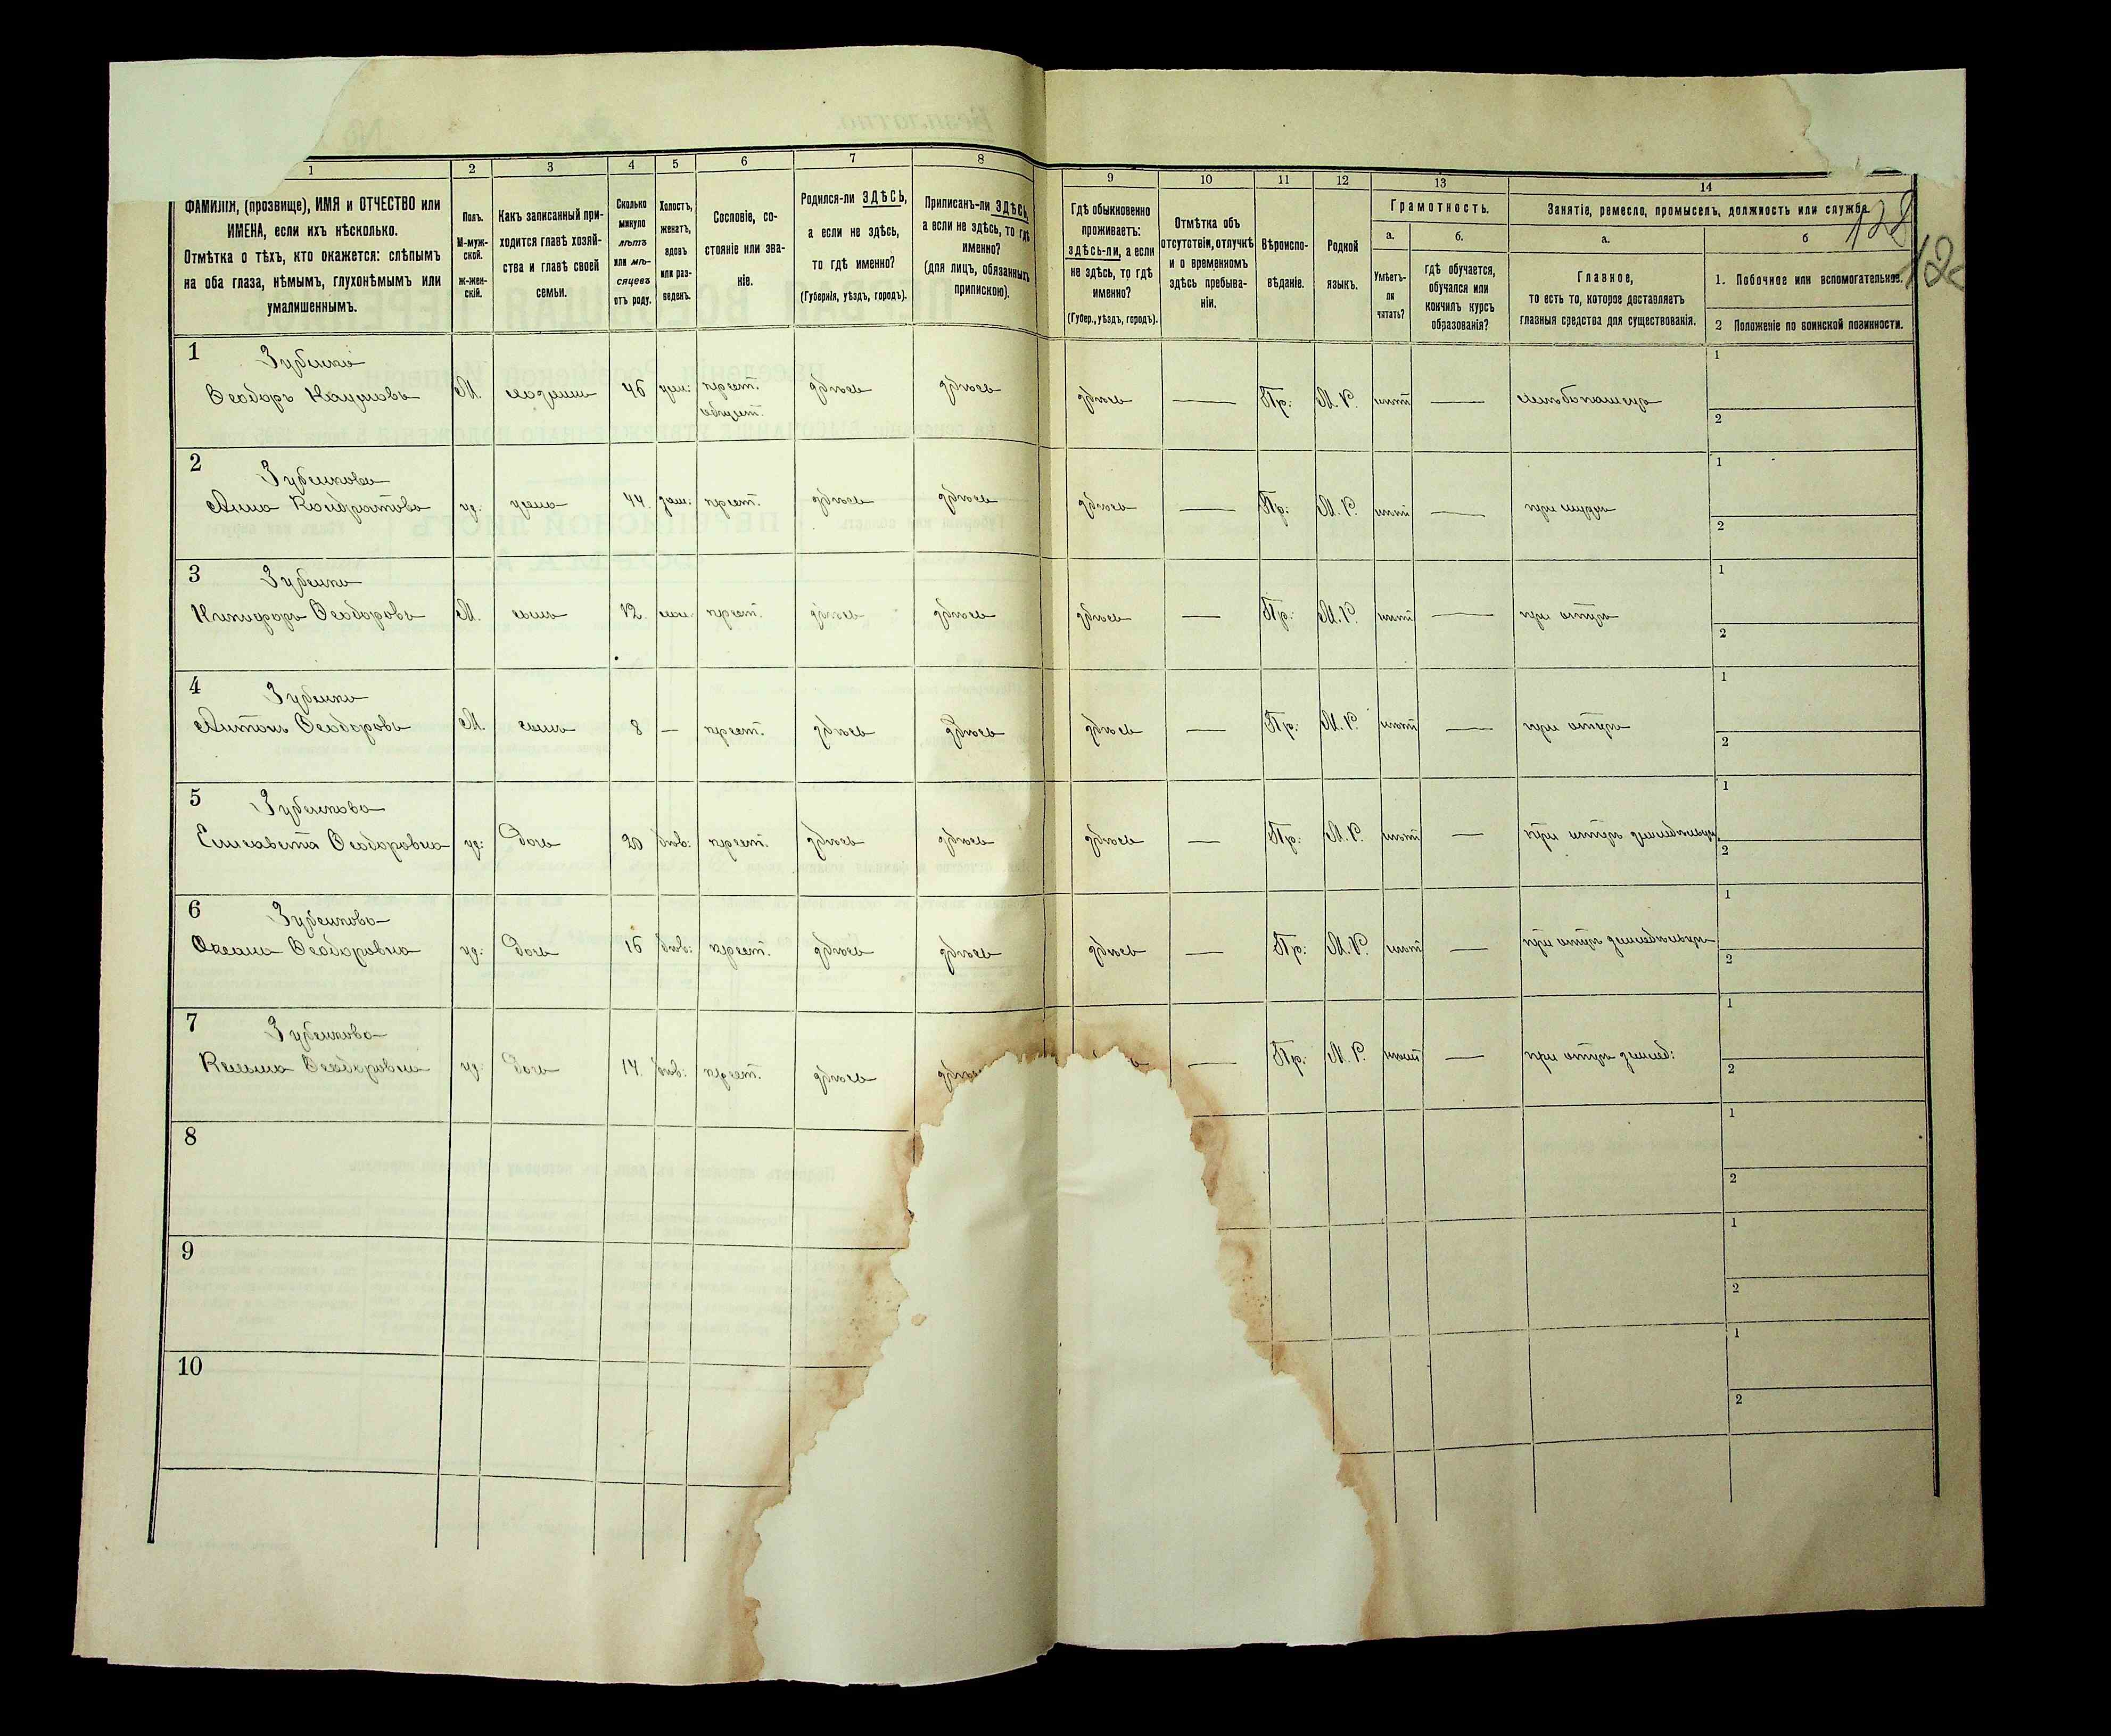 1 2 3 4 5 6 7 8 9 10 11 12 13 14
ФАМИЛІЯ, (прозвище), ИМЯ и ОТЧЕСТВО или
ИМЕНА, если ихъ нѣсколько.
Отмѣтка о тѣхъ, кто окажется: слѣпымъ
на оба глаза, нѣмымъ, глухонѣмымъ или
умалишеннымъ.
Полъ.
М-муж-
ской.
ж-жен-
скій.
Какъ записанный при-
ходится главѣ хозяй-
ства и главѣ своей
семьи.
Сколько
минуло
лѣтъ
или мѣ-
сяцевъ
отъ роду.
Холостъ,
женатъ,
вдовъ
или раз-
веденъ.
Сословіе, со-
стояніе или зва-
ніе.
Родился-ли ЗДѢСЬ,
а если не здѣсь,
то гдѣ именно?
(Губернія, уѣздъ, городъ).
Приписанъ-ли ЗДѢСЬ,
а если не здѣсь, то гдѣ
именно?
(для лицъ, обязанныхъ
припискою).
Гдѣ обыкновенно
проживаетъ:
здѣсь-ли, а если
не здѣсь, то гдѣ
именно?
(Губер., уѣздъ, городъ).
Отмѣтка объ
отсутствіи, отлучкѣ
и о временномъ
здѣсь пребыва-
ніи.
Вѣроиспо-
вѣданіе.
Родной
языкъ.
Грамотность.
а.
Умѣетъ-
ли
читать?
б.
гдѣ обучается,
обучался или
кончилъ курсъ
образованія?
Занятіе, ремесло, промыселъ, должность или служба.
а.
Главное,
то есть то, которое доставляетъ
главныя средства для существованія.
б
1. Побочное или вспомогательное.
2 Положеніе по воинской повинности.
1
Ѳеодоръ
М. 46 жен: крест. здѣсь здѣсь здѣсь — Пр: М. Р. нѣтъ —
1
2
2 Зубенкова
Анна Кондратова ж: жена 44. зам: крест. здѣсь здѣсь здѣсь — Пр: М. Р. нѣтъ — при мужѣ
1
2
3 Зубенко
Никифоръ Ѳеодоровъ М. сынъ 12. крест. здѣсь здѣсь здѣсь — Пр: М. Р. нѣтъ — при отцѣ
1
2
4 Зубенко
Антонъ Ѳеодоровъ М. сынъ 8 — крест. здѣсь здѣсь здѣсь — Пр: М. Р. нѣтъ — при отцѣ
1
2
5 Зубенкова
Елисавета Ѳеодоровна ж: дочь 20 дѣв: крест. здѣсь здѣсь здѣсь — Пр: М. Р. нѣтъ — при отцѣ
1
2
6 Зубенкова
Ѳеодоровна ж: дочь 16 дѣв: крест. здѣсь здѣсь здѣсь — Пр: М. Р. нѣтъ — при отцѣ
1
2
7 Зубенкова
Ѳеодоровна ж: дочь 14. дѣв: крест. здѣсь — Пр: М. Р. нѣтъ — при отцѣ
1
2
8
1
2
9
1
2
10
1
2